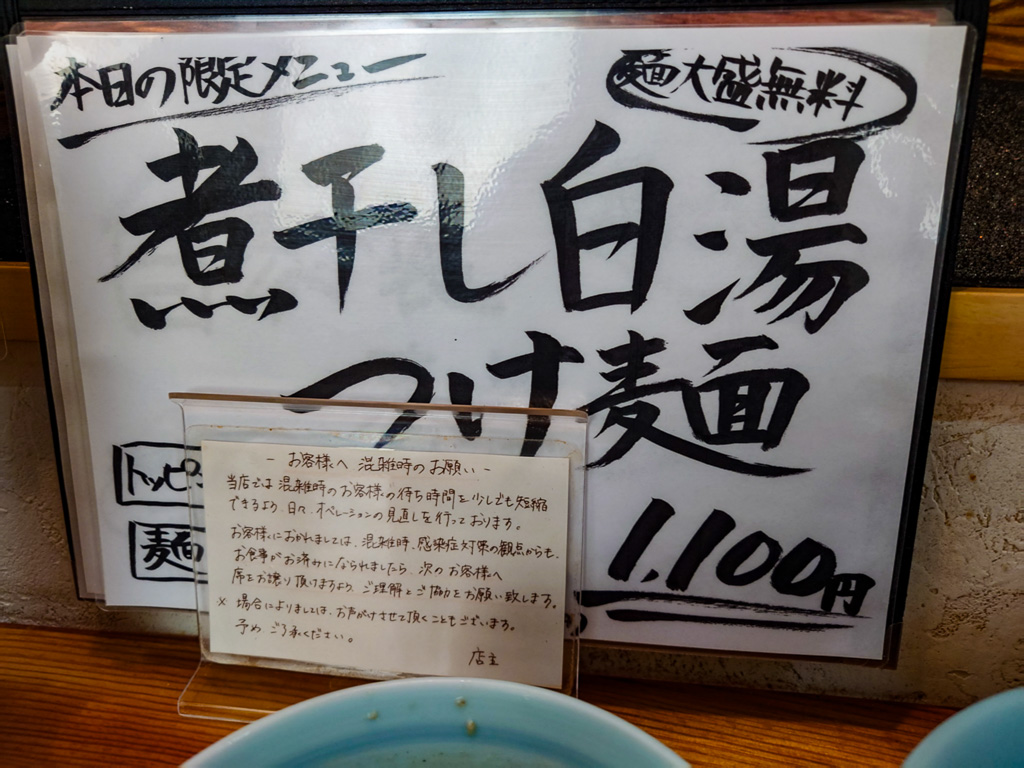 本日の限定メニュー
麺大盛無料
煮干し白湯
つけ麺
トッピン
麺
1,100円
- お客様へ 混雑時のお願い -
当店では 混雑時のお客様の待ち時間を少しでも短縮
できるよう、日々、オペレーションの見直しを行っております。
お客様におかれましては、混雑時、感染症対策の観点からも、
お食事がお済みになられましたら、次のお客様へ
席をお譲り頂けますよう、ご理解とご協力をお願い致します。
※ 場合によりましては、お声がけさせて頂くこともございます。
予め ご了承ください。
店主